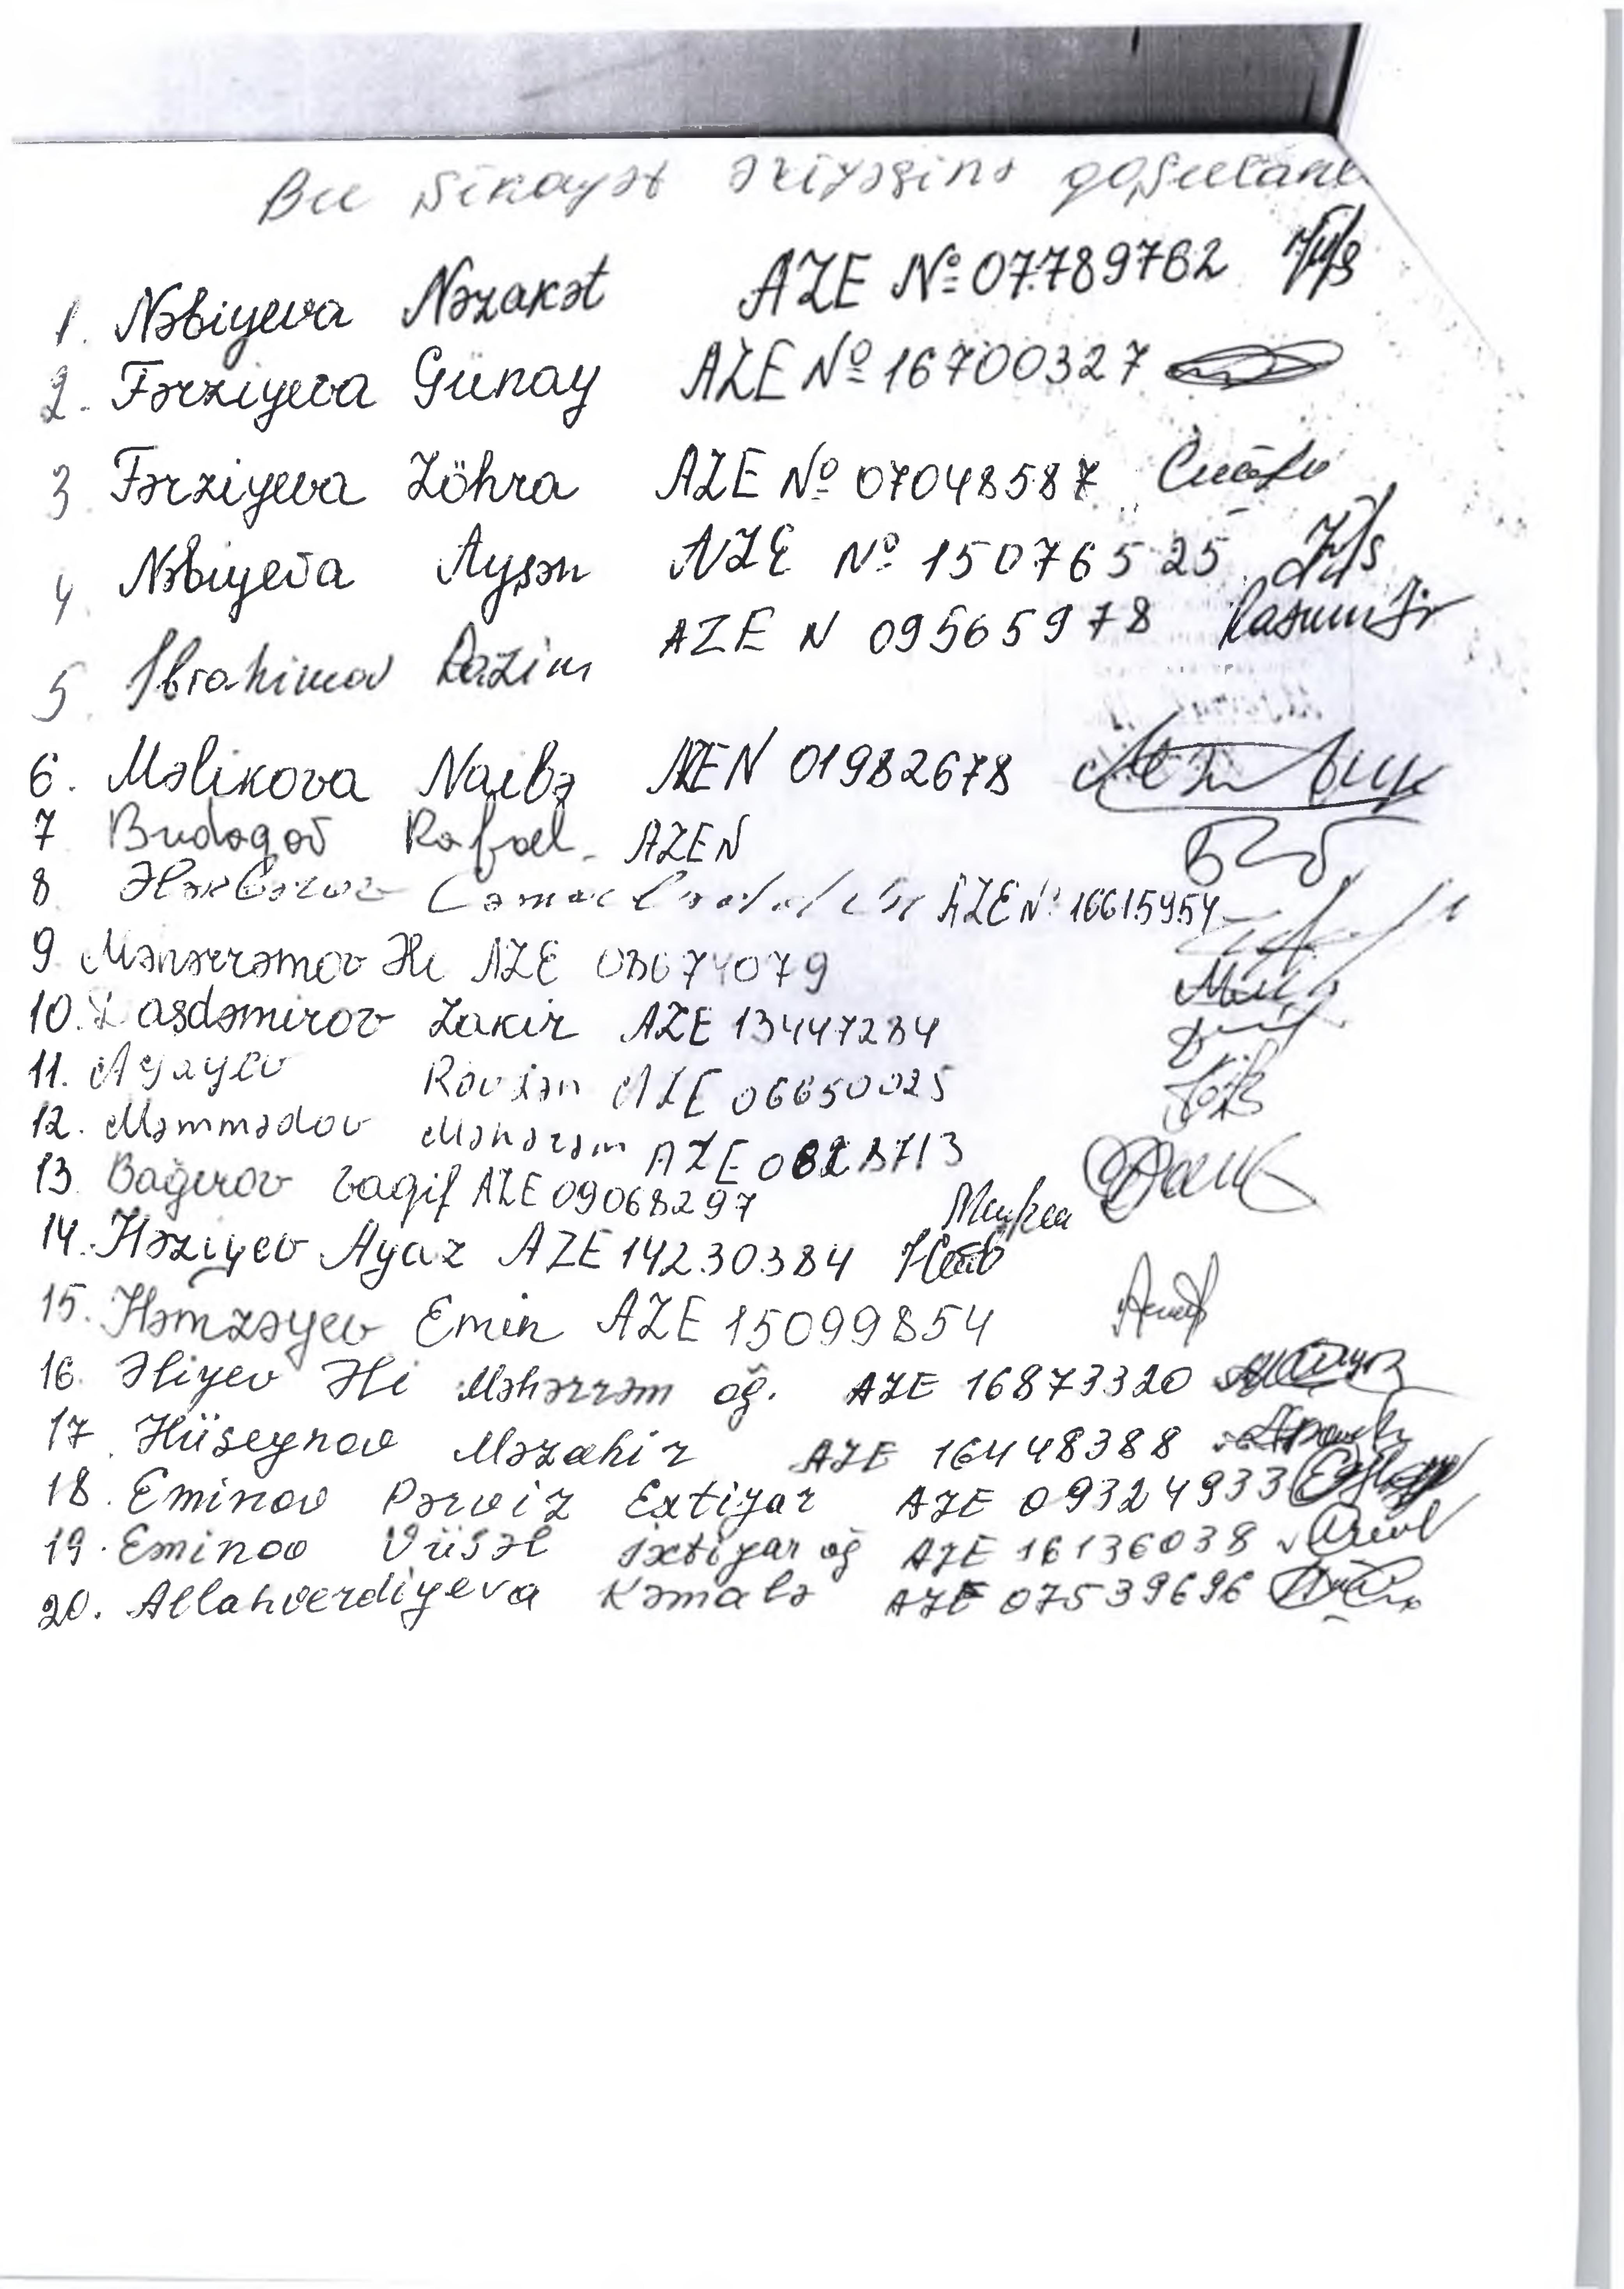 Bu şikayət ərizəsinə qoşulanlar
1. Nəbiyeva Nəzakət AZE № 07789762
2. Fərziyeva Günay AZE № 16700327
3. Fərziyeva Zöhra AZE № 07048587
4. Nəbiyeva Aysən AZE № 15076525
5. İbrahimov Razim AZE N 09565978
6. Məlikova Naibə AZE N 01982678
7 Budaqov Rafael. AZE N
8 AZE № 16615954
9 Əli AZE
10. Daşdəmirov Zakir AZE 13447284
11. Ağayev Rövşən AZE 06650025
12. Məmmədov AZE
13. Bağırov Vaqif AZE 09068297
14. Həziyev Ayaz AZE 14230384
15. Həmzəyev Emin AZE 15099854
16. Əliyev Əli Məhərrəm oğ. AZE 16873320
17. Hüseynov Məzahir AZE 16448388
18. Eminov Pərviz Extiyar AZE 09324933
19. Eminov Vüsəl ixtiyar oğ AZE 16136038
20. Allahverdiyeva Kəmalə AZE 07539696